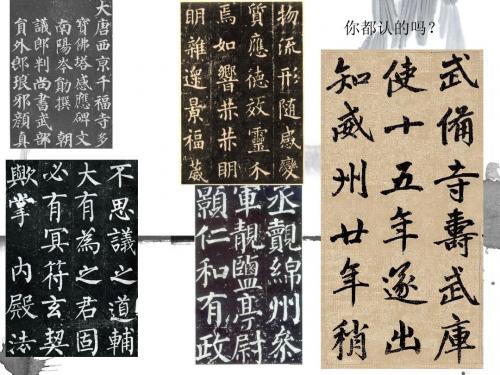 你都认的吗?
大唐西京千福寺多
寶佛塔感應碑文
南陽岑勛撰 朝
議郎判尚書武部
員外郎琅邪顏真
物流形隨感變
質應德效靈不
焉如響赫赫明
明雜遝景福葳
武備寺壽武庫
使十五年遂出
知威州廿年稍
不思議之道輔
大有為之君固
必有冥符玄契
歟掌 內殿法
丞覿綿州參
軍靚鹽亭尉
顯仁和有政